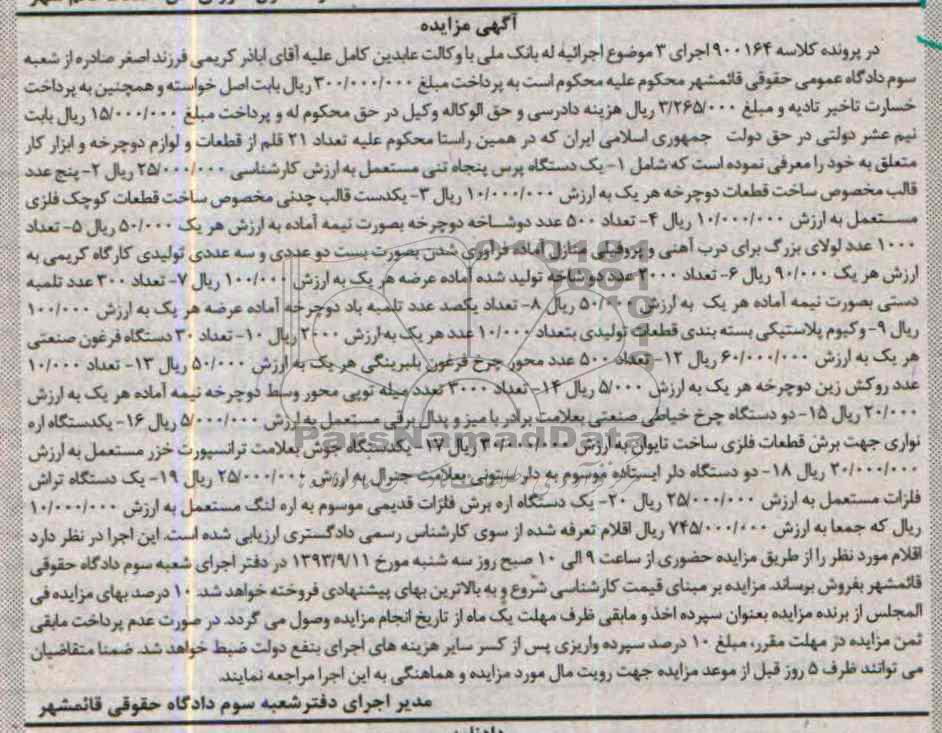 آگهی مزایده
در پرونده کلاسه ۹۰۰۱۶۴ اجرای ۳ موضوع اجرائیه له بانک ملی با وکالت عابدین کامل علیه آقای اباذر کریمی فرزند اصغر صادره از شعبه
سوم دادگاه عمومی حقوقی قائمشهر محکوم علیه محکوم است به پرداخت مبلغ ۳۰۰/۰۰۰/۰۰۰ ریال بابت اصل خواسته و همچنین به پرداخت
خسارت تاخیر تادیه و مبلغ ۳/۲۶۵/۰۰۰ ریال هزینه دادرسی و حق الوکاله وکیل در حق محکوم له و پرداخت مبلغ ۱۵/۰۰۰/۰۰۰ ریال بابت
نیم عشر دولتی در حق دولت جمهوری اسلامی ایران که در همین راستا محکوم علیه تعداد ۲۱ قلم از قطعات و لوازم دوچرخه و ابزار کار
متعلق به خود را معرفی نموده است که شامل ۱- یک دستگاه پرس پنجاه تنی مستعمل به ارزش کارشناسی ۲۵/۰۰۰/۰۰۰ ریال ۲- پنج عدد
قالب مخصوص ساخت قطعات دوچرخه هر یک به ارزش ۱۰/۰۰۰/۰۰۰ ریال ۳- یکدست قالب چدنی مخصوص ساخت قطعات کوچک فلزی
مستعمل به ارزش ۱۰/۰۰۰/۰۰۰ ریال ۴- تعداد ۵۰۰ عدد دوشاخه دوچرخه بصورت نیمه آماده به ارزش هر یک ۵۰/۰۰۰ ریال ۵- تعداد
۱۰۰۰ عدد لولای بزرگ برای درب آهنی و پروفیلی منازل آماده فرآوری شدن بصورت بست دو عددی و سه عددی تولیدی کارگاه کریمی به
ارزش هر یک ۹۰/۰۰۰ ریال ۶- تعداد ۲۰۰۰ عدد دوشاخه تولید شده آماده عرضه هر یک به ارزش ۱۰۰/۰۰۰ ریال ۷- تعداد ۳۰۰ عدد تلمبه
دستی بصورت نیمه آماده هر یک به ارزش ۵۰/۰۰۰ ریال ۸- تعداد یکصد عدد تلمبه باد دوچرخه آماده عرضه هر یک به ارزش ۱۰۰/۰۰۰
ریال ۹- وکیوم پلاستیکی بسته بندی قطعات تولیدی بتعداد ۱۰/۰۰۰ عدد هر یک به ارزش ۲۰۰۰ ریال ۱۰- تعداد ۳۰ دستگاه فرغون صنعتی
هر یک به ارزش ۶۰/۰۰۰/۰۰۰ ریال ۱۲- تعداد ۵۰۰ عدد محور چرخ فرغون بلبرینگی هر یک به ارزش ۵۰/۰۰۰ ریال ۱۳- تعداد ۱۰/۰۰۰
عدد روکش زین دوچرخه هر یک به ارزش ۵/۰۰۰ ریال ۱۴- تعداد ۳۰۰۰ تعدد میله توپی محور وسط دوچرخه نیمه آماده هر یک به ارزش
۲۰/۰۰۰ ریال ۱۵- دو دستگاه چرخ خیاطی صنعتی بعلامت برادر با میز و پدال برقی مستعمل به ارزش ۵/۰۰۰/۰۰۰ ریال ۱۶- یکدستگاه اره
نواری جهت برش قطعات فلزی ساخت تایوان به ارزش ۳۰/۰۰۰/۰۰۰ ریال ۱۷- یکدستگاه جوش بعلامت ترانسپورت خزر مستعمل به ارزش
۲۰/۰۰۰/۰۰۰ ریال ۱۸- دو دستگاه دلر ایستاده موسوم به دلر ستونی بعلامت جنرال به ارزش ۲۵/۰۰۰/۰۰۰ ریال ۱۹- یک دستگاه تراش
فلزات مستعمل به ارزش ۲۵/۰۰۰/۰۰۰ ریال ۲۰- یک دستگاه اره برش فلزات قدیمی موسوم به اره لنگ مستعمل به ارزش ۱۰/۰۰۰/۰۰۰
ریال که جمعا به ارزش ۷۴۵/۰۰۰/۰۰۰ ریال اقلام تعرفه شده از سوی کارشناس رسمی دادگستری ارزیابی شده است. این اجرا در نظر دارد
اقلام مورد نظر را از طریق مزایده حضوری از ساعت ۹ الی ۱۰ صبح روز سه شنبه مورخ ۱۳۹۳/۹/۱۱ در دفتر اجرای شعبه سوم دادگاه حقوقی
قائمشهر بفروش برساند. مزایده بر مبنای قیمت کارشناسی شروع و به بالاترین بهای پیشنهادی فروخته خواهد شد. ۱۰ درصد بهای مزایده فی
المجلس از برنده مزایده بعنوان سپرده اخذ و مابقی ظرف مهلت یک ماه از تاریخ انجام مزایده وصول می گردد. در صورت عدم پرداخت مابقی
ثمن مزایده در مهلت مقرر، مبلغ ۱۰ درصد سپرده واریزی پس از کسر سایر هزینه های اجرای بنفع دولت ضبط خواهد شد. ضمنا متقاضیان
می توانند ظرف ۵ روز قبل از موعد مزایده جهت رویت مال مورد مزایده و هماهنگی به این اجرا مراجعه نمایند.
مدیر اجرای دفترشعبه سوم دادگاه حقوقی قائمشهر
ParsNamadData